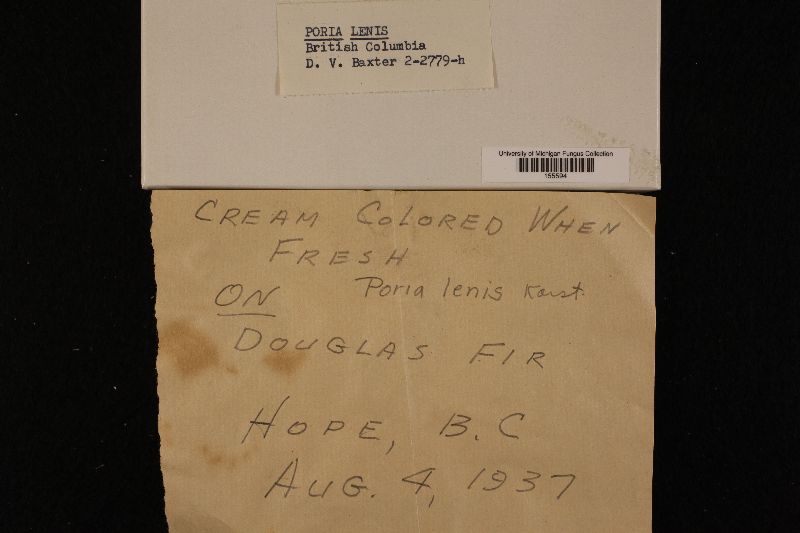 PORIA LENIS
British Columbia
D. V. Baxter 2-2779-h
University of Michigan Fungus Collection
155594
CREAM COLORED WHEN
FRESH
ON Poria lenis Karst.
DOUGLAS FIR
HOPE, B.C
AUG. 4, 1937